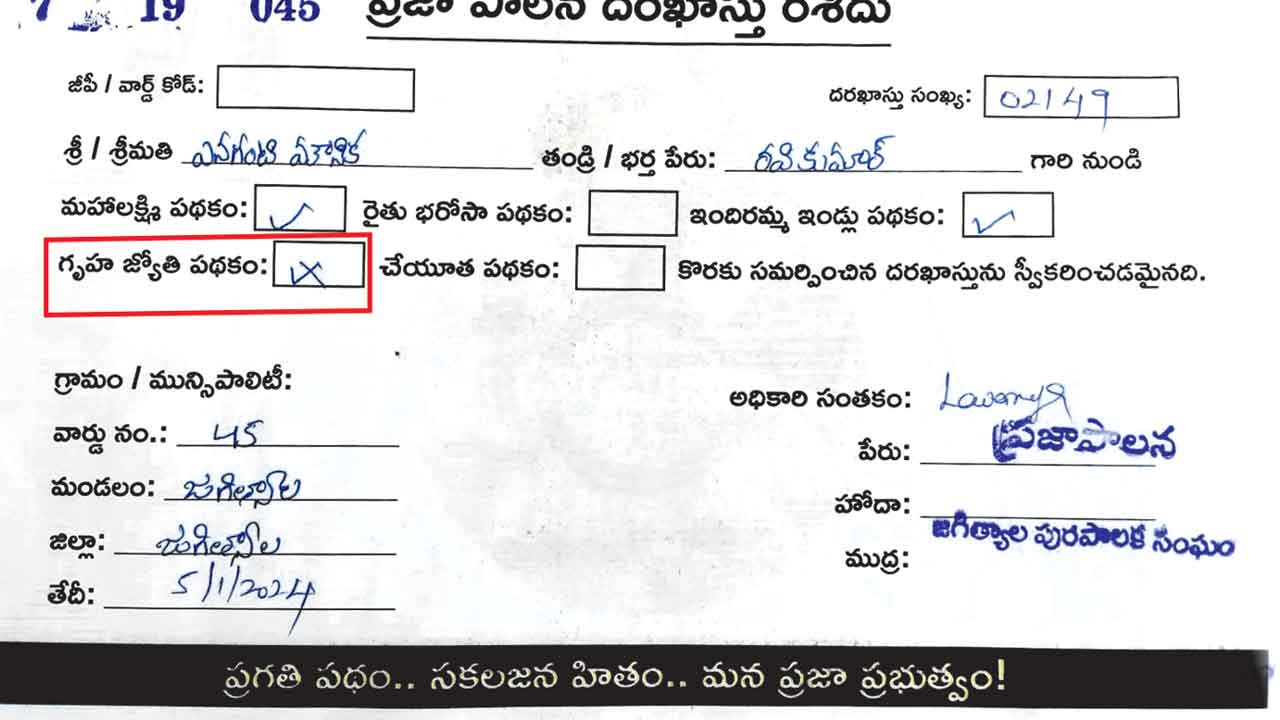 7 19 045 ప్రజా పాలన దరఖాస్తు రశీదు
జీపీ / వార్డ్ కోడ్: దరఖాస్తు సంఖ్య: 02149
శ్రీ / శ్రీమతి ఎనగంటి తండ్రి / భర్త పేరు: రవికుమార్ గారి నుండి
మహాలక్ష్మి పథకం: ✓ రైతు భరోసా పథకం: ఇందిరమ్మ ఇండ్లు పథకం: ✓
గృహ జ్యోతి పథకం: చేయూత పథకం: కొరకు సమర్పించిన దరఖాస్తును స్వీకరించడమైనది.
గ్రామం / మున్సిపాలిటీ:
అధికారి సంతకం: Lavanya
వార్డు నం.: 45
పేరు: ప్రజాపాలన
మండలం: జగిత్యాల
హోదా:
జిల్లా: జగిత్యాల
జగిత్యాల పురపాలక సంఘం
ముద్ర:
తేదీ: 5/1/2024
ప్రగతి పథం.. సకలజన హితం.. మన ప్రజా ప్రభుత్వం!